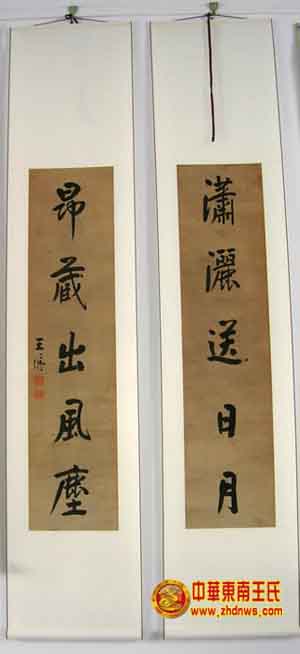 瀟灑送日月
昂藏出風塵
中華東南王氏
www.zhdnws.com